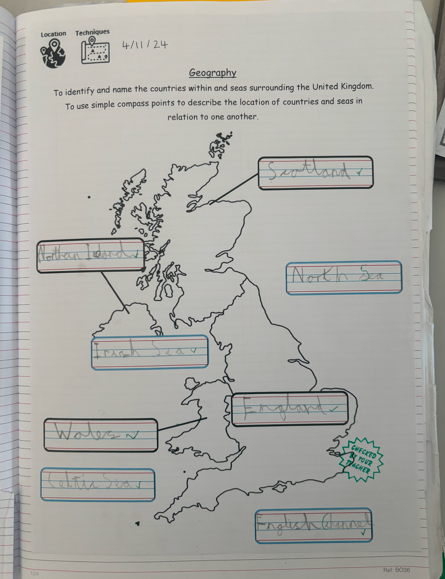 Location Techniques
4/11/24
Geography
To identify and name the countries within and seas surrounding the United Kingdom.
To use simple compass points to describe the location of countries and seas in
relation to one another.
Scotland
Northern Ireland
North Sea
Irish Sea
England
Wales
Celtic Sea
English Channel
CHECKED
BY YOUR
TEACHER